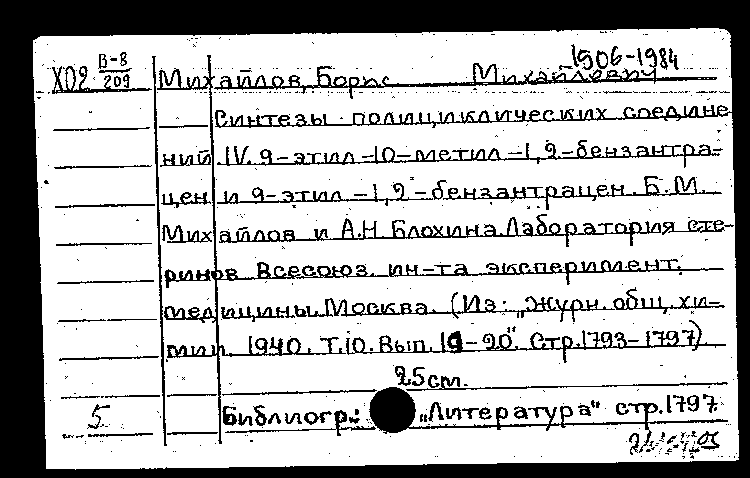 1906-1984
Х02 В-8/209 Михайлов, Борис Михайлович
Синтезы полициклических соедине
ний. IV. 9-этил-10-метил-1,2-бензантра-
цен и 9-этил-1,2-бензантрацен. Б.М.
Михайлов и А.Н. Блохина. Лаборатория сте-
ринов Всесоюз. ин-та эксперимент.
медицины. Москва. (Из: „Журн. общ. хи-
мии. 1940. Т.10. Вып. 19-20". Стр. 1793-1797)
25 см.
5 Библиогр.: „Литература" стр. 1797